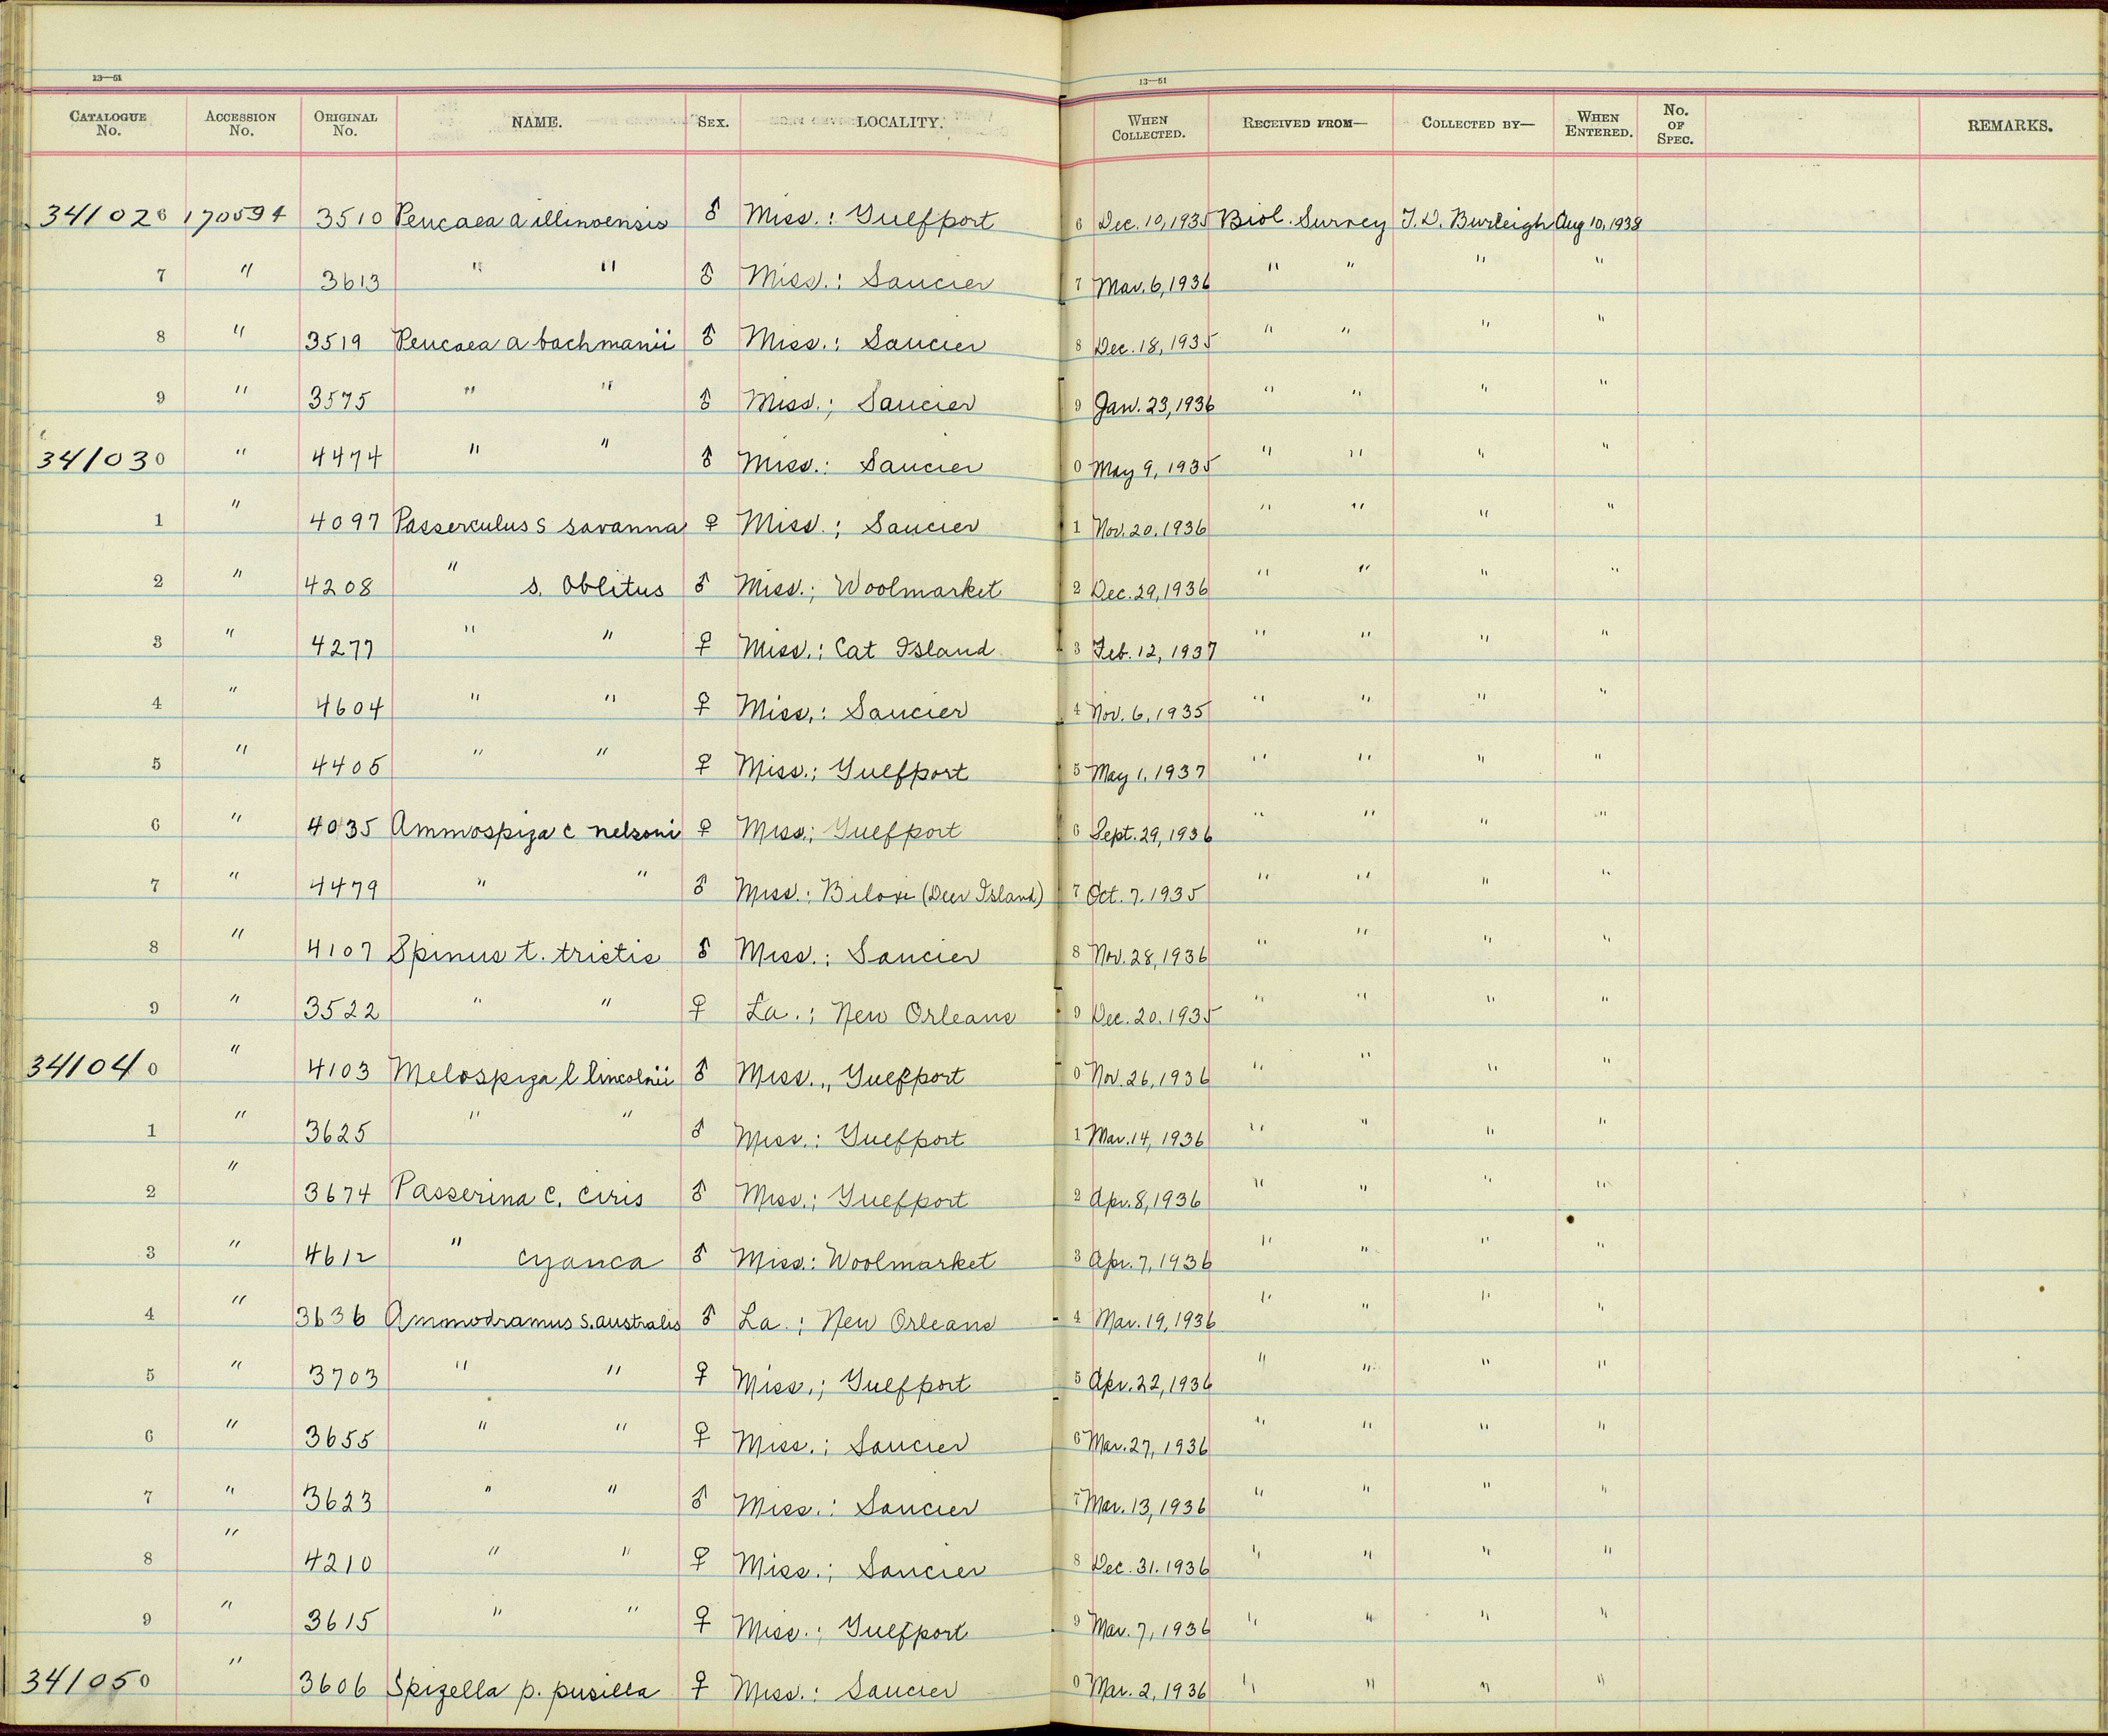 13—51 13—51
CATALOGUE No. ACCESSION No. ORIGINAL No. NAME. SEX. LOCALITY. WHEN COLLECTED. RECEIVED FROM— COLLECTED BY— WHEN ENTERED. No. OF SPEC. REMARKS.
341026 170594 3510 Peucaea a illinoensis ♂ Miss.: Gulfport 6 Dec. 10, 1935 Biol. Survey T. D. Burleigh Aug 10, 1938
7 " 3613 " " ♂ Miss.: Saucier 7 Mar. 6, 1936 " " " "
8 " 3519 Peucaea a bachmanii ♂ Miss.: Saucier 8 Dec. 18, 1935 " " " "
9 " 3575 " " ♂ Miss.; Saucier 9 Jan. 23, 1936 " " " "
341030 " 4474 " " ♂ Miss.: Saucier 0 May 9, 1935 " " " "
1 " 4097 Passerculus s savanna ♀ Miss.; Saucier 1 Nov. 20. 1936 " " " "
2 " 4208 " s. oblitus ♂ Miss.; Woolmarket 2 Dec. 29, 1936 " " " "
3 " 4277 " " ♀ Miss.: Cat Island 3 Feb. 12, 1937 " " " "
4 " 4604 " " ♀ Miss.: Saucier 4 Nov. 6, 1935 " " " "
5 " 4405 " " ♀ Miss.; Gulfport 5 May 1, 1937 " " " "
6 " 4035 Ammospiza c nelsoni ♀ Miss.; Gulfport 6 Sept. 29, 1936 " " " "
7 " 4479 " " ♂ Miss.: Biloxi (Deer Island) 7 Oct. 7. 1935 " " " "
8 " 4107 Spinus t. tristis ♂ Miss.: Saucier 8 Nov. 28, 1936 " " " "
9 " 3522 " " ♀ La.: New Orleans 9 Dec. 20. 1935 " " " "
341040 " 4103 Melospiza l lincolnii ♂ Miss., Gulfport 0 Nov. 26, 1936 " " " "
1 " 3625 " " ♂ Miss.: Gulfport 1 Mar. 14, 1936 " " " "
2 " 3674 Passerina c. ciris ♂ Miss.; Gulfport 2 Apr. 8, 1936 " " " "
3 " 4612 " cyanea ♂ Miss.: Woolmarket 3 Apr. 7, 1936 " " " "
4 " 3636 Ammodramus s. australis ♂ La.; New Orleans 4 Mar. 19, 1936 " " " "
5 " 3703 " " ♀ Miss.; Gulfport 5 Apr. 22, 1936 " " " "
6 " 3655 " " ♀ Miss.; Saucier 6 Mar. 27, 1936 " " " "
7 " 3623 " " ♂ Miss.: Saucier 7 Mar. 13, 1936 " " " "
8 " 4210 " " ♀ Miss.; Saucier 8 Dec. 31. 1936 " " " "
9 " 3615 " " ♀ Miss.: Gulfport 9 Mar. 7, 1936 " " " "
341050 " 3606 Spizella p. pusilla ♀ Miss.: Saucier 0 Mar. 2, 1936 " " " "